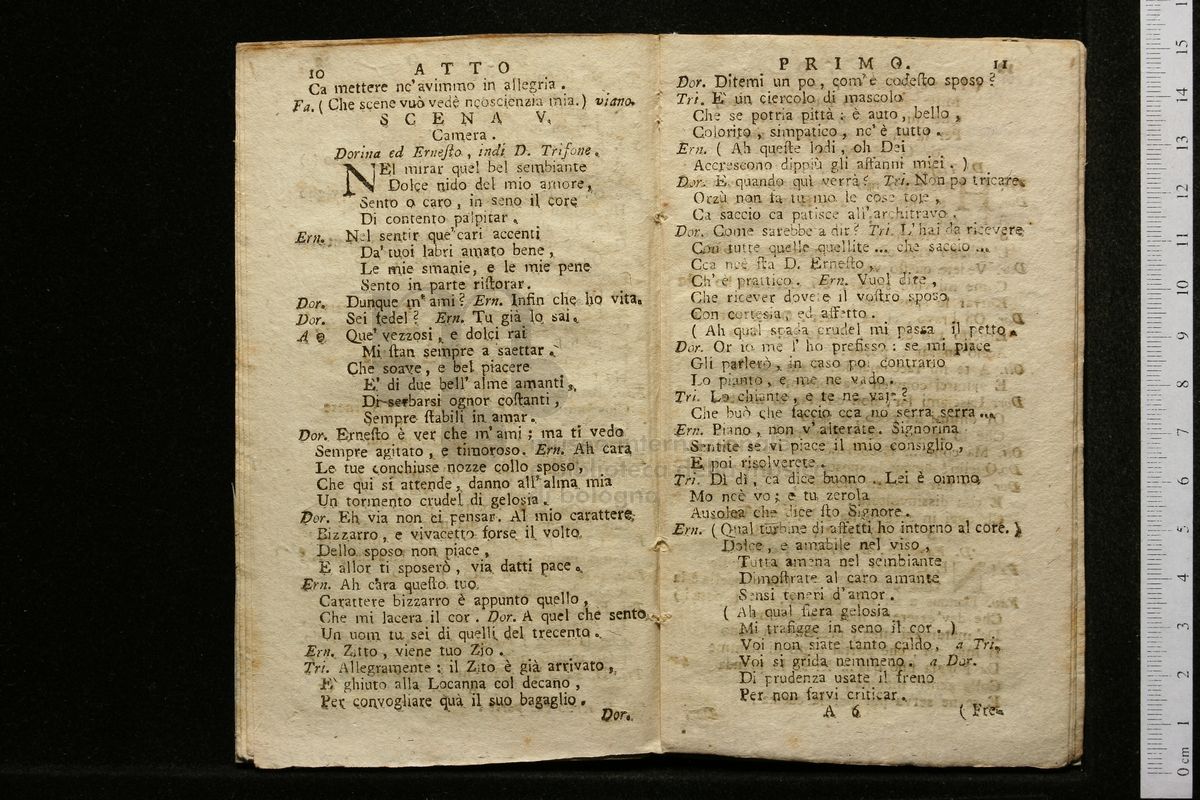 10 ATTO
Ca mettere nc'avimmo in allegria.
Fa. (Che scene vuò vedè ncoscienzia mia.) viano.
SCENA V.
Camera.
Dorina ed Ernesto, indi D. Trifone.
NEl mirar quel bel sembiante
Dolce nido del mio amore,
Sento o caro, in seno il core
Di contento palpitar.
Ern. Nel sentir que' cari accenti
Da' tuoi labri amato bene,
Le mie smanie, e le mie pene
Sento in parte ristorar.
Dor. Dunque m'ami? Ern. Infin che ho vita.
Dor. Sei fedel? Ern. Tu già lo sai.
A 2 Que' vezzosi, e dolci rai
Mi stan sempre a saettar.
Che soave, e bel piacere
E' di due bell' alme amanti,
Di serbarsi ognor costanti,
Sempre stabili in amar.
Dor. Ernesto è ver che m'ami; ma ti vedo
Sempre agitato, e timoroso. Ern. Ah cara
Le tue conchiuse nozze collo sposo,
Che qui si attende, danno all' alma mia
Un tormento crudel di gelosia.
Dor. Eh via non ci pensar. Al mio carattere
Bizzarro, e vivacetto forse il volto
Dello sposo non piace,
E allor ti sposerò, via datti pace.
Ern. Ah cara questo tuo
Carattere bizzarro è appunto quello,
Che mi lacera il cor. Dor. A quel che sento
Un uom tu sei di quelli del trecento.
Ern. Zitto, viene tuo Zio.
Tri. Allegramente: il Zito è già arrivato,
E' ghiuto alla Locanna col decano,
Per convogliare quà il suo bagaglio.
Dor.
PRIMO. 11
Dor. Ditemi un po, com'è codesto sposo?
Tri. E' un ciercolo di mascolo
Che se potria pittà: è auto, bello,
Colorito, simpatico, nc'è tutto.
Ern. (Ah queste lodi, oh Dei
Accrescono dippiù gli affanni miei.)
Dor. E quando quì verrà? Tri. Non po tricare.
Orzù non fa tu mo le cose toje,
Ca saccio ca patisce all'architravo.
Dor. Come sarebbe a dir? Tri. L'hai da ricevere
Con tutte quelle quellite... che saccio...
Cca ncè sta D. Ernesto,
Ch'è prattico. Ern. Vuol dire,
Che ricever dovete il vostro sposo
Con cortesia, ed affetto.
(Ah qual spada crudel mi passa il petto.
Dor. Or io me l'ho prefisso: se mi piace
Gli parlerò, in caso poi contrario
Lo pianto, e me ne vado.
Tri. Lo chiante, e te ne vaje?
Che buò che faccio cca no serra serra...
Ern. Piano, non v'alterate. Signorina
Sentite se vi piace il mio consiglio,
E poi risolverete.
Tri. Di di, ca dice buono. Lei è ommo
Mo ncè vo; e tu zerola
Ausolea che dice sto Signore.
Ern. (Qual turbine di affetti ho intorno al core.)
Dolce, e amabile nel viso,
Tutta amena nel sembiante
Dimostrate al caro amante
Sensi teneri d'amor.
(Ah qual fiera gelosia
Mi trafigge in seno il cor.)
Voi non siate tanto caldo, a Tri.
Voi si grida nemmeno. a Dor.
Di prudenza usate il freno
Per non farvi criticar.
A 6 (Fre-